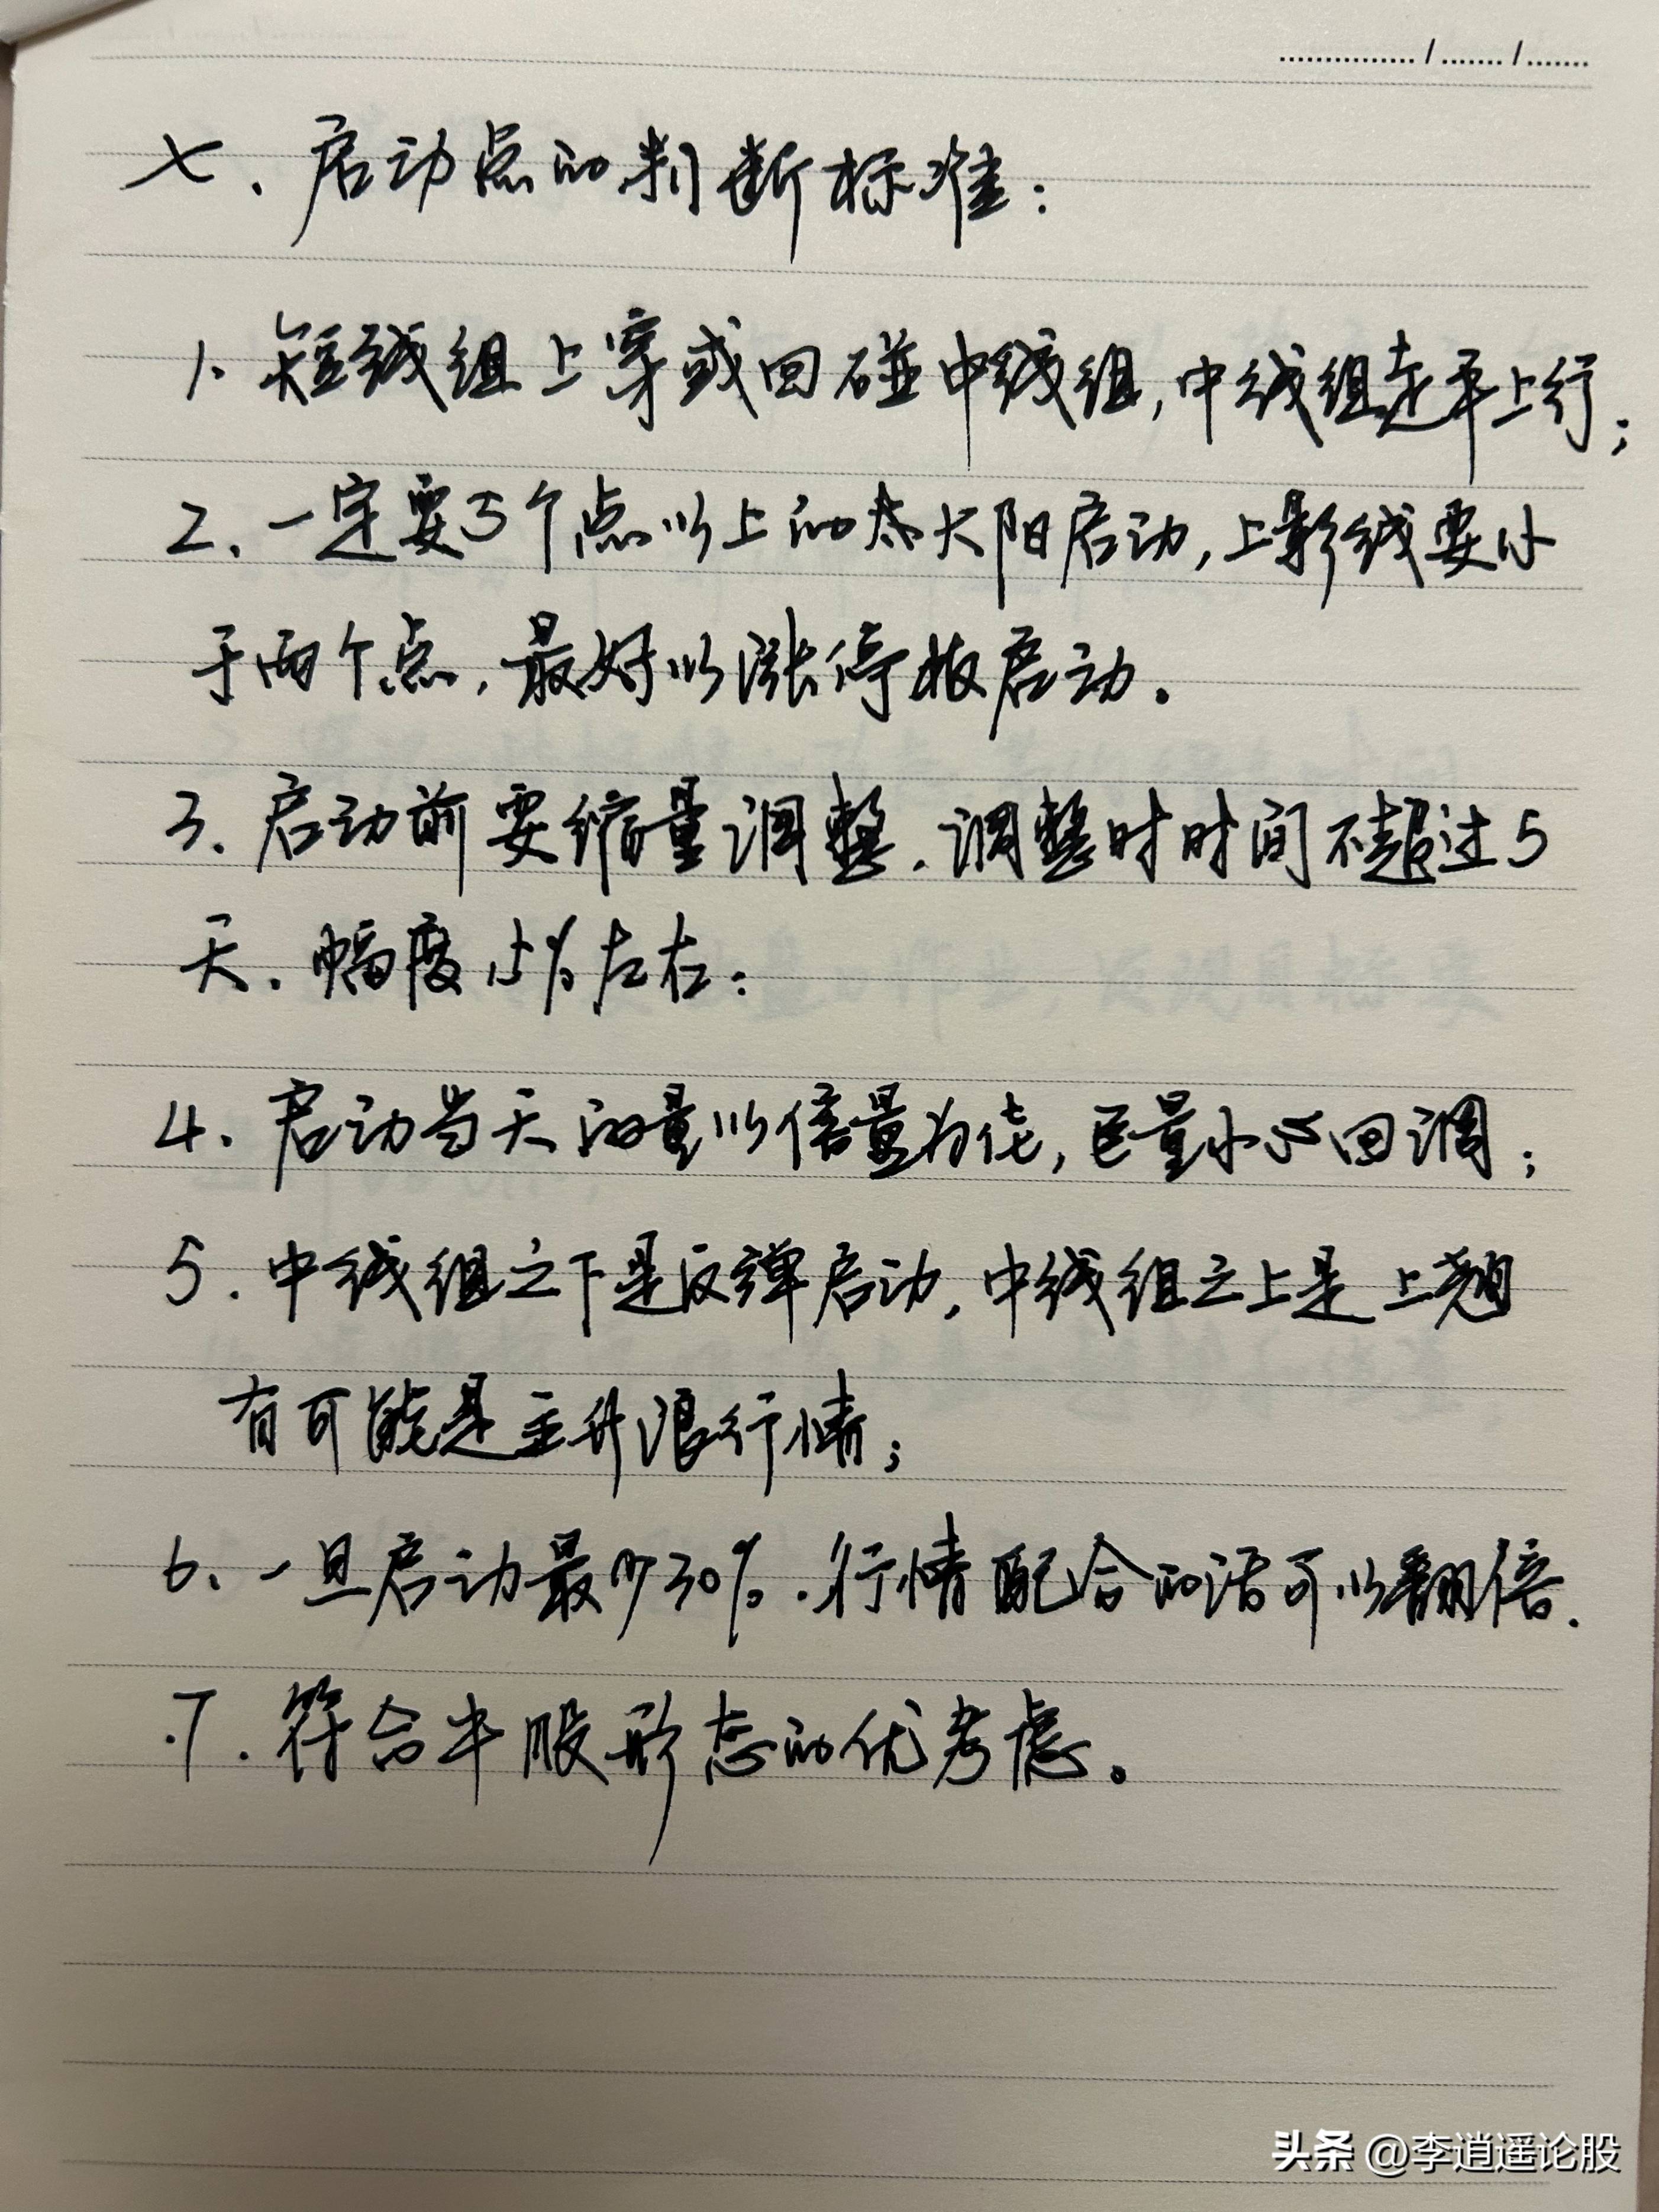 七、启动点的判断标准：
1、短线组上穿或回碰中线组，中线组走平上行；
2、一定要5个点以上的大阳启动，上影线要小
于两个点，最好以涨停板启动。
3、启动前要缩量调整，调整时时间不超过5
天、幅度15%左右；
4、启动当天的量以倍量为佳，巨量小心回调；
5、中线组之下是反弹启动，中线组之上是上翘
有可能是主升浪行情；
6、一旦启动最少30%，行情配合的话可以翻倍.
7、符合牛股形态的优考虑。
头条 @李逍遥论股